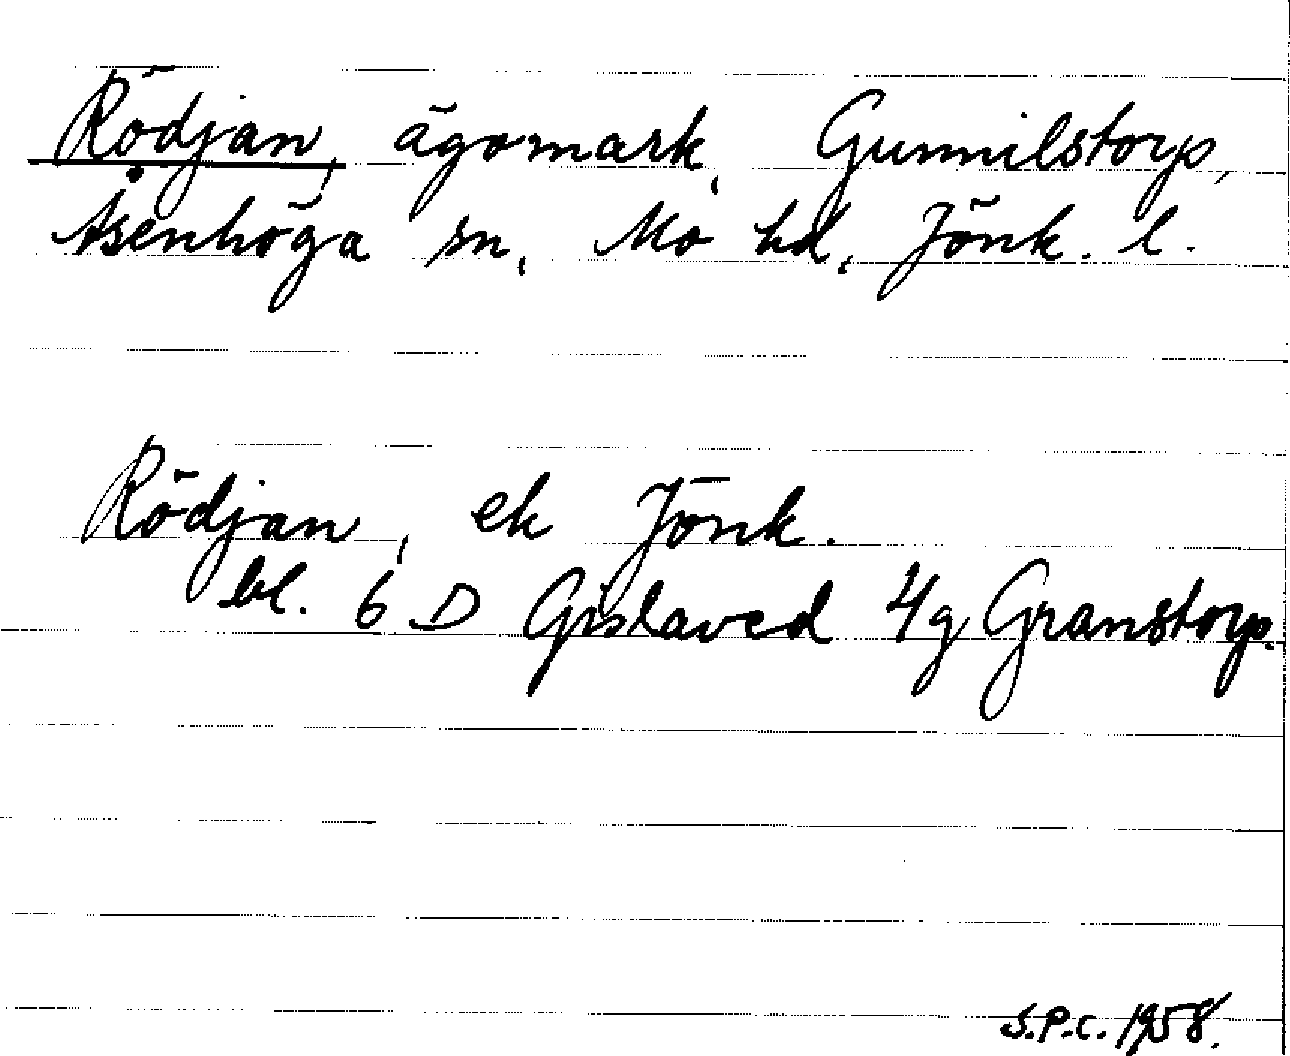 Rödjan, ägomark, Gunnilstorp,
Åsenhöga sn, Mo hd, Jönk. l.
Rödjan, ek Jönk.
bl. 6 D Gislaved 4g Granstorp.
S.P.C. 1958.